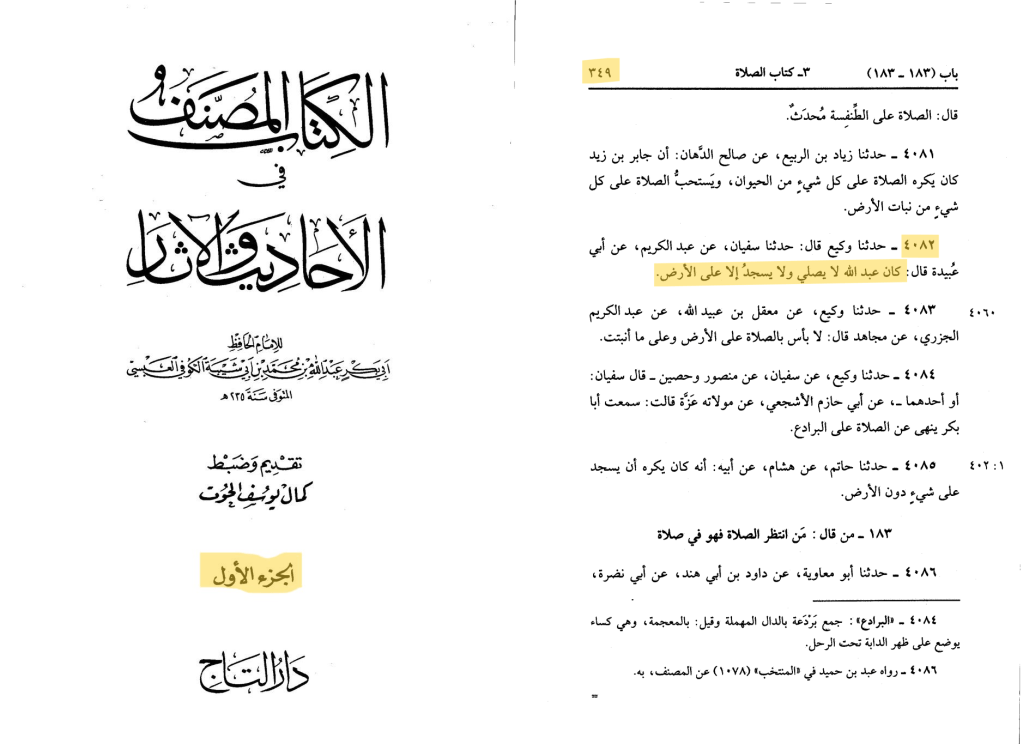 الكتاب المصنف
في
الأحاديث والآثار
للإمام الحافظ
أبي بكر عبد الله بن محمد بن أبي شيبة الكوفي العبسي
المتوفى سنة ٢٣٥ هـ
تقديم وضبط
كمال يوسف الحوت
الجزء الأول
دار التاج
باب (١٨٣ - ١٨٣) ٣ـ كتاب الصلاة ٣٤٩
قال: الصلاة على الطِّنفِسة مُحدَثٌ.
٤٠٨١ ـ حدثنا زياد بن الربيع، عن صالح الدَّهان: أن جابر بن زيد
كان يَكره الصلاة على كل شيءٍ من الحيوان، ويَستحبُّ الصلاة على كل
شيءٍ من نبات الأرض.
٤٠٨٢ ـ حدثنا وكيع قال: حدثنا سفيان، عن عبد الكريم، عن أبي
عُبيدة قال: كان عبد الله لا يصلي ولا يسجدُ إلا على الأرض.
٤٠٨٣ ـ حدثنا وكيع، عن معقل بن عبيد الله، عن عبد الكريم ٤٠٦٠
الجزري، عن مجاهد قال: لا بأس بالصلاة على الأرض وعلى ما أنبتت.
٤٠٨٤ ـ حدثنا وكيع، عن سفيان، عن منصور وحصين ـ قال سفيان:
أو أحدهما ـ، عن أبي حازم الأشجعي، عن مولاته عَزَّة قالت: سمعت أبا
بكر ينهى عن الصلاة على البرادع.
٤٠٨٥ ـ حدثنا حاتم، عن هشام، عن أبيه: أنه كان يكره أن يسجد ١: ٤٠٢
على شيءٍ دون الأرض.
١٨٣ ـ من قال: مَن انتظر الصلاة فهو في صلاة
٤٠٨٦ ـ حدثنا أبو معاوية، عن داود بن أبي هند، عن أبي نضرة،
٤٠٨٤ ـ «البرادع»: جمع بَرْدَعة بالدال المهملة وقيل: بالمعجمة، وهي كساء
يوضع على ظهر الدابة تحت الرحل.
٤٠٨٦ ـ رواه عبد بن حميد في «المنتخب» (١٠٧٨) عن المصنف، به.
=